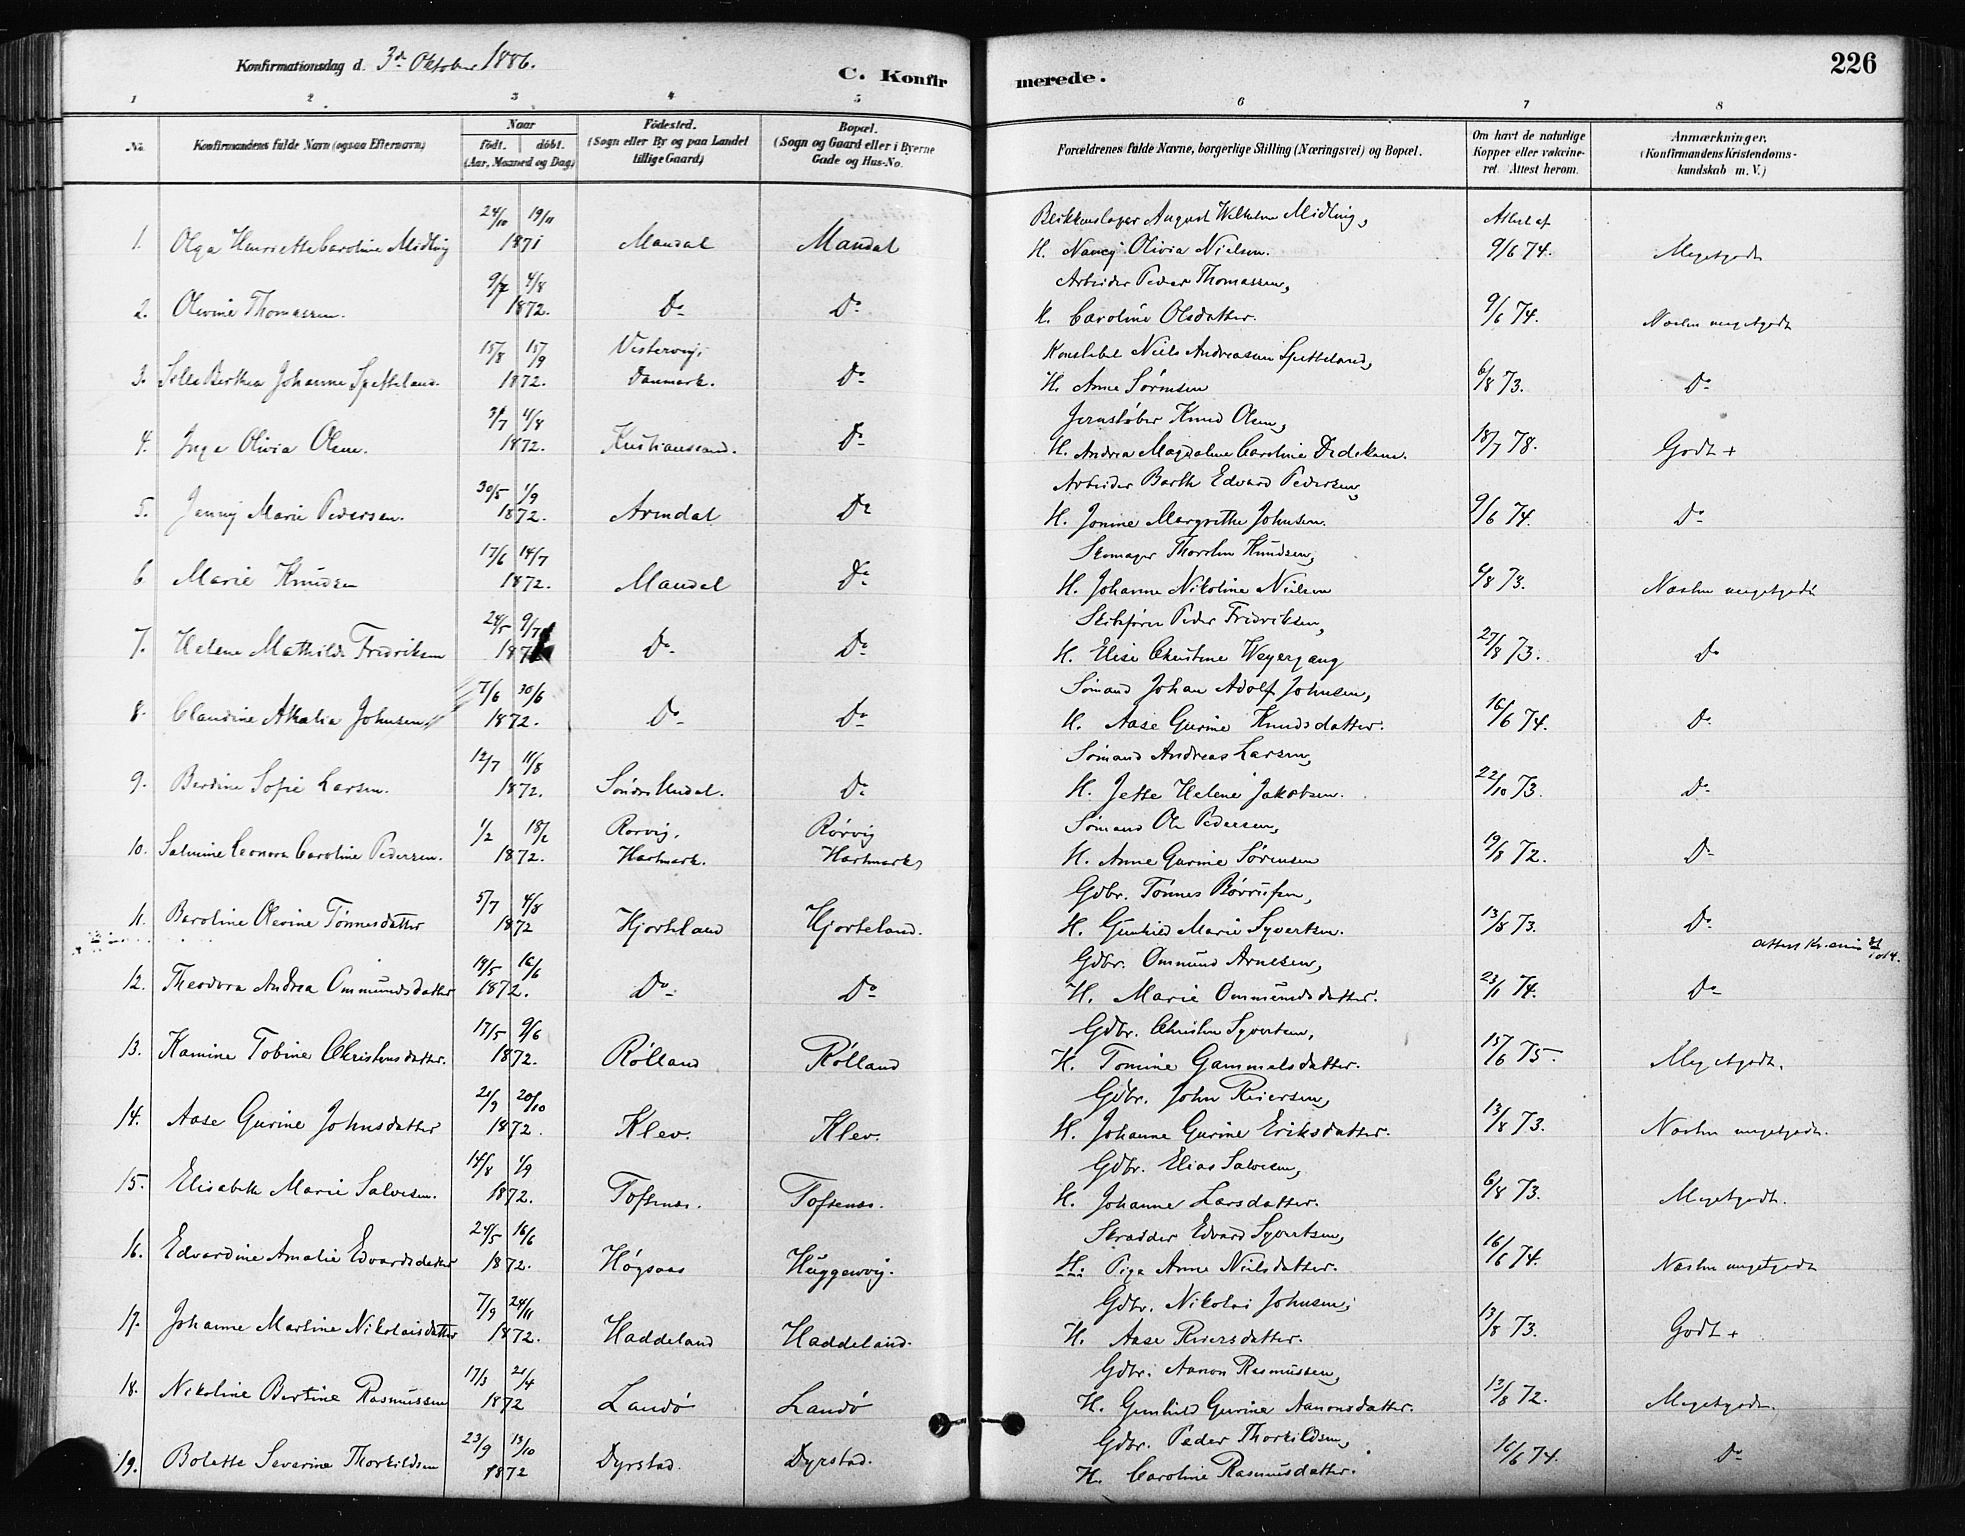 Konfirmationsdag d. 3de Oktober 1886.
C. Konfirmerede.
226
1 2 3 4 5 6 7 8
No. Konfirmandens fulde Navn (ogsaa Efternavn) Naar födt. döbt. (Aar, Maaned og Dag) Födested. (Sogn eller By og paa Landet tillige Gaard) Bopæl. (Sogn og Gaard eller i Byerne Gade og Hus-No. Forældrenes fulde Navne, borgerlige Stilling (Næringsvei) og Bopæl. Om havt de naturlige Kopper eller vakcineret. Attest herom. Anmærkninger. (Konfirmandens Kristendomskundskab m. V.)
24/10 19/11 Blikkenslager August Wilhelm Midling, Attest af
1. Olga Henriette Caroline Midling 1871 Mandal Mandal H. Nancy Olivia Nielsen. 9/6 74. Megetgodt
9/7 4/8 Arbeider Peder Thomassen,
2. Olevine Thomassen. 1872. Do Do H. Caroline Olsdatter. 9/6 74. Næsten megetgodt
15/8 15/9 Vestervig, Konstabel Niels Andreasen Spetteland,
3. Berthea Johanne Spetteland. 1872. Danmark. Do H. Anne Sörensen 6/8 73. Do
3/7 4/8 Jernstöber Knud Olsen,
4. Inga Olivia Olsen. 1872. Kristianssand. Do H. Andrea Magdalene Caroline Dedekam. 18/7 78. Godt +
30/5 1/9 Arbeider Barth Edvard Pedersen,
5. Jenny Marie Pedersen. 1872. Arendal Do H. Jonine Margrethe Johnsen. 9/6 74. Do
17/6 14/7 Skomager Thorsten Knudsen,
6. Marie Knudsen 1872. Mandal Do H. Johanne Nikoline Nielsen 6/8 73. Næsten megetgodt
24/5 9/7 Skibsförer Peder Fredriksen,
7. Helene Mathilde Fredriksen 1872 Do Do H. Elise Christine Weyergang 27/8 73. Do
7/6 30/6 Sömand Johan Adolf Johnsen,
8. Claudine Athalia Johnsen. 1872. Do Do H. Aase Gurine Knudsdatter. 16/6 74. Do
12/7 11/8 Sömand Andreas Larsen,
9. Berdine Sofie Larsen. 1872. Sönder Undal. Do H. Jette Helene Jakobsen. 22/10 73. Do
1/2 18/2 Rorvig, Rörvig Sömand Ole Pedersen,
10. Salmine Leonora Caroline Pedersen. 1872. Hartmark. Hartmark, H. Anne Gurine Sörensen 19/8 72. Do
5/7 4/8 Gdbr. Tönnes Börresen,
11. Beroline Olevine Tönnesdatter 1872 Hjorteland Hjorteland. H. Gunhild Marie Syvertsen. 13/8 73. Do
19/5 16/6 Gdbr. Ommund Arnesen,
12. Theodora Andrea Ommundsdatter 1872. Do Do H. Marie Ommundsdatter. 23/11 74. Do
17/5 9/6 Gdbr. Christen Syvertsen,
13. Kamine Tobine Christensdatter. 1872. Rölland Rölland H. Tomine Gammelsdatter. 15/6 75. Megetgodt.
21/9 20/10 Gdbr. John Reiersen,
14. Aase Gurine Johnsdatter 1872. Klev. Klev. H. Johanne Gurine Eriksdatter. 13/8 73. Næsten megetgodt.
14/8 1/9 Gdbr. Elias Salvesen,
15. Elisabeth Marie Salvesen. 1872. Toftenes. Toftenes. H. Johanne Larsdatter. 6/8 73. Megetgodt.
24/5 16/6 Skrædder Edvard Syvertsen,
16. Edvardine Amalie Edvardsdatter 1872. Högsaas Huggenvig. H. Pige Anne Nielsdatter. 16/6 74. Næsten megetgodt
7/9 24/11 Gdbr. Nikolai Johnsen,
17. Johanne Martine Nikolaisdatter 1872. Haddeland Haddeland. H. Aase Reiersdatter. 13/8 73. Godt +
17/3 21/4 Gdbr. Aanon Rasmussen,
18. Nikoline Bertine Rasmussen 1872 Landö Landö H. Gunhild Gurine Aanonsdatter. 12/8 72. Megetgodt.
23/9 13/10 Gdbr. Peder Thorkildsen,
19. Bolette Severine Thorkildsen 1872 Dyrstad. Dyrstad. H. Caroline Rasmusdatter. 16/6 74. Do